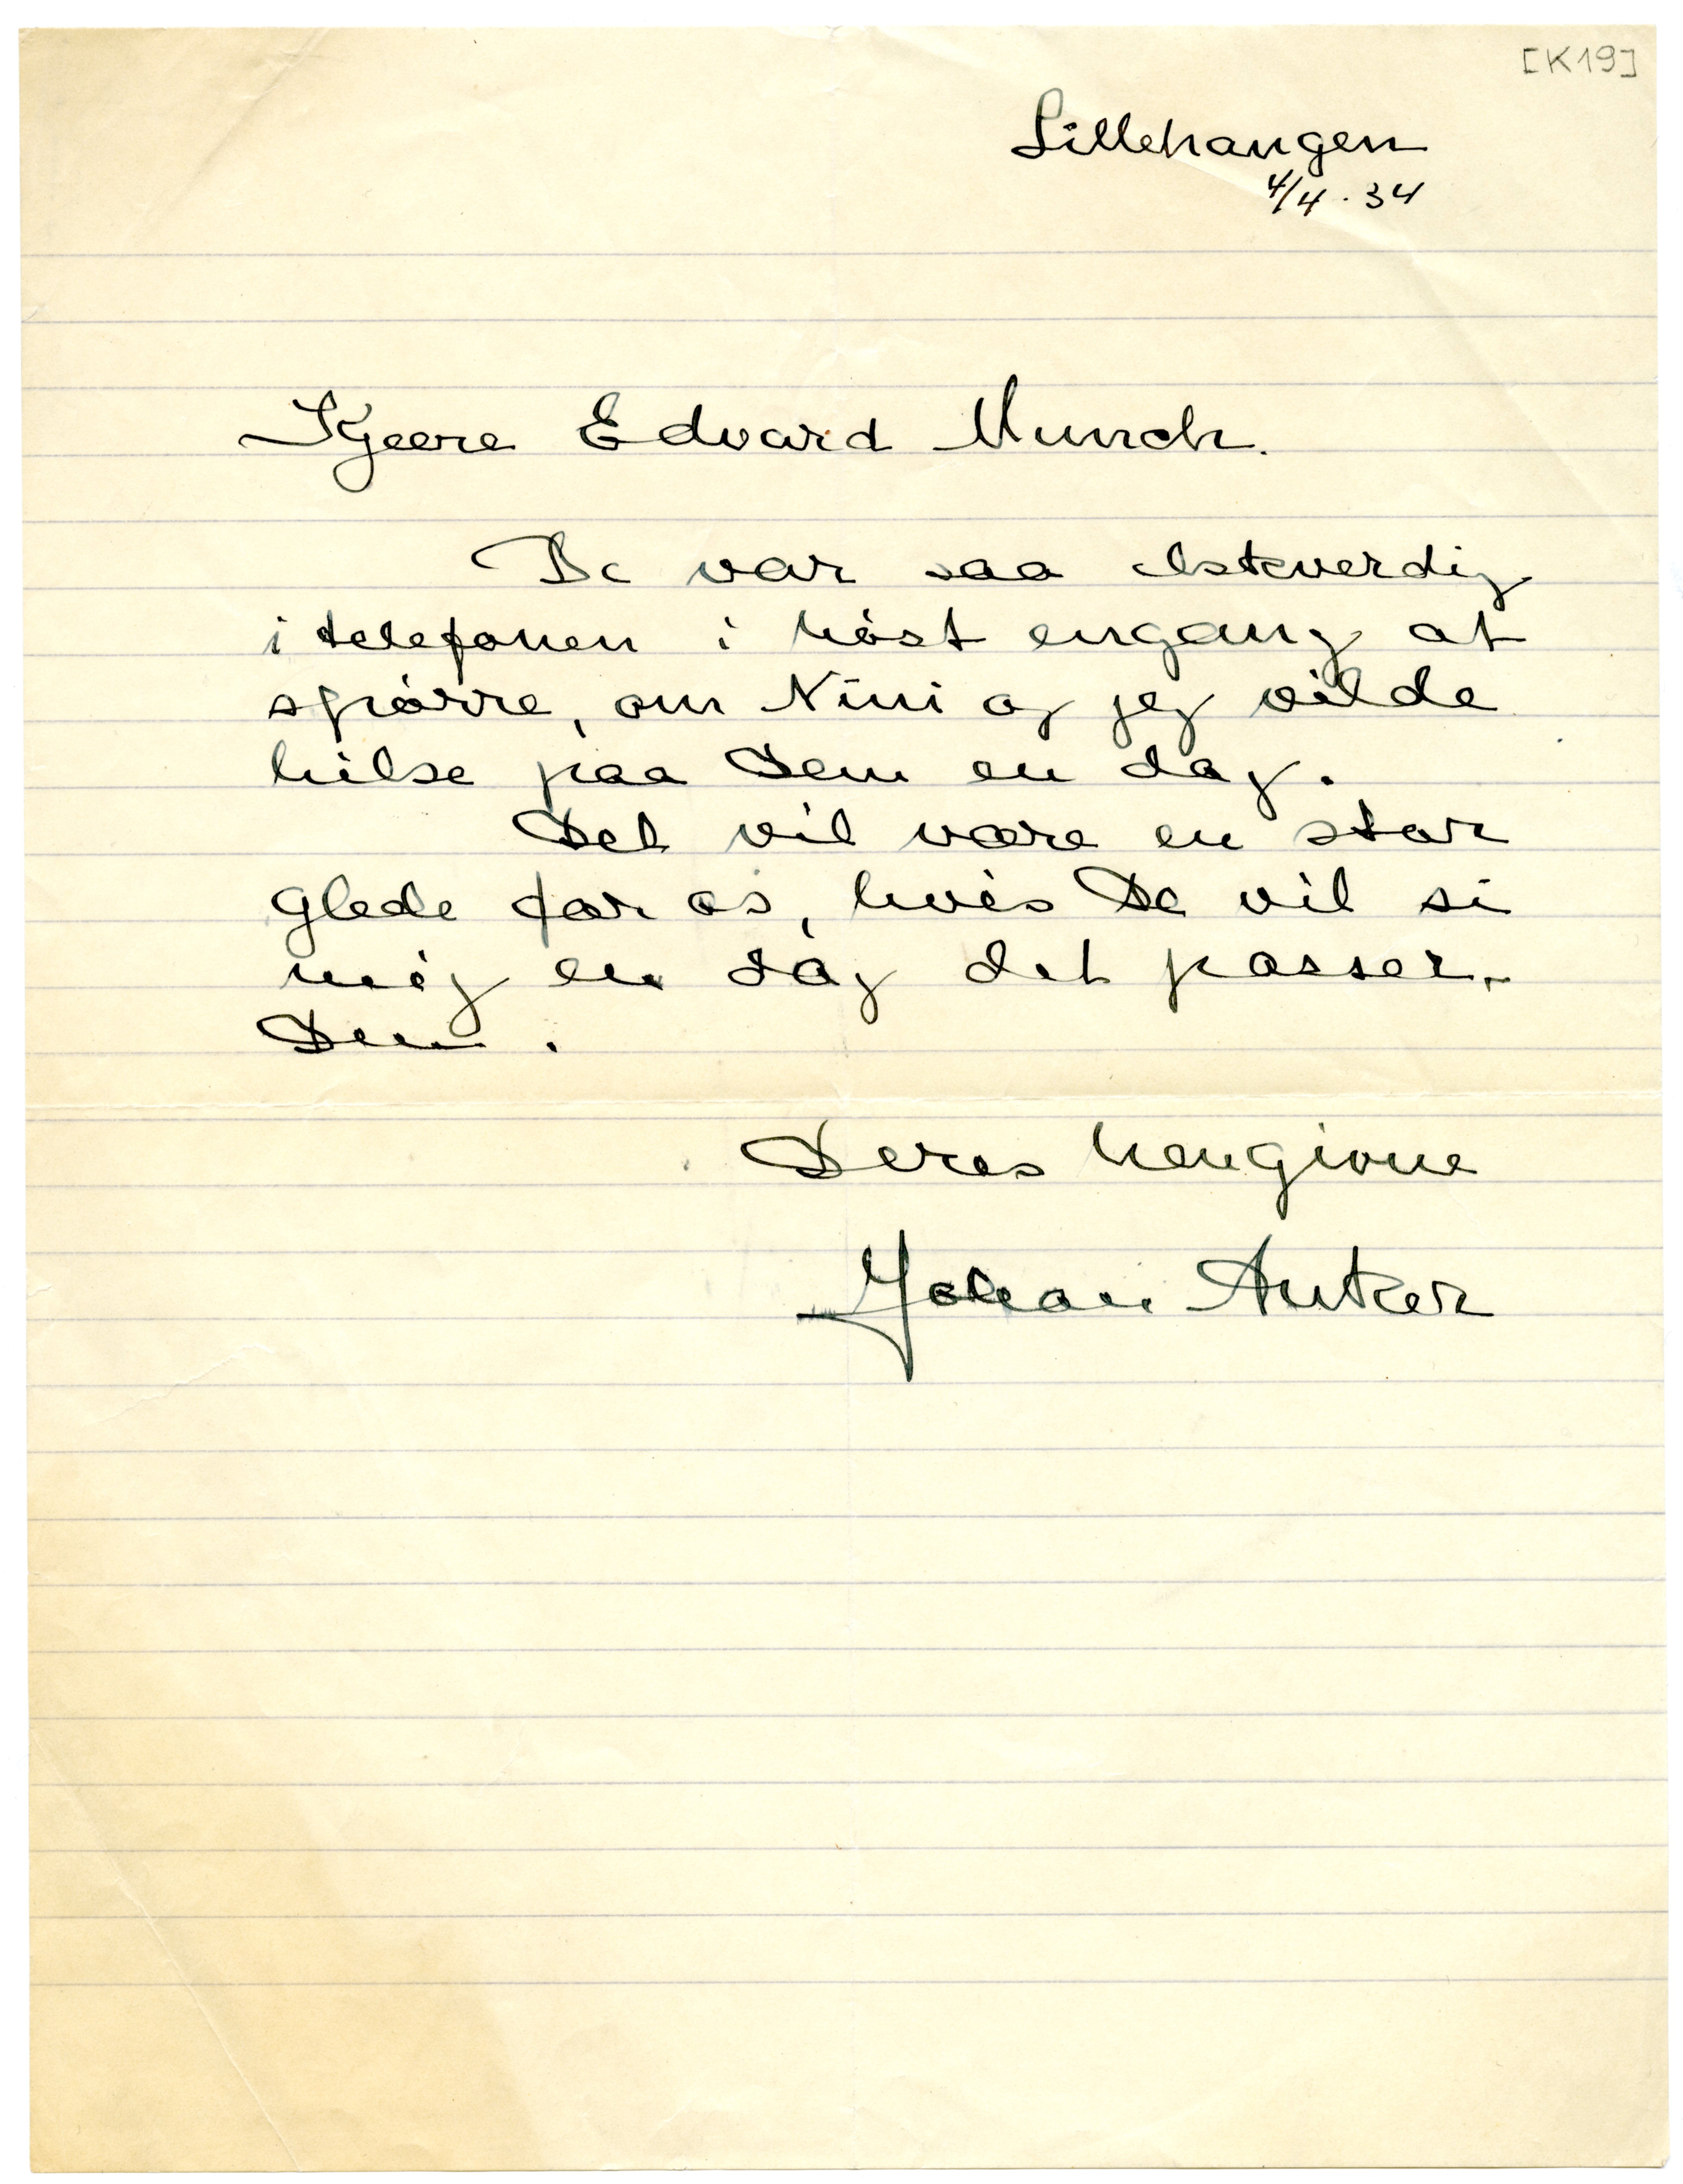 [K19]
Lillehaugen
4/4 . 34
Kjære Edvard Munch.
De var saa elskverdig
i telefonen i høst engang at
spørre, om Nini og jeg vilde
hilse paa Dem en dag.
Det vil være en stor
glede for os, hvis De vil si
mig en dag det passer
Dem.
Deres hengivne
Johan Anker